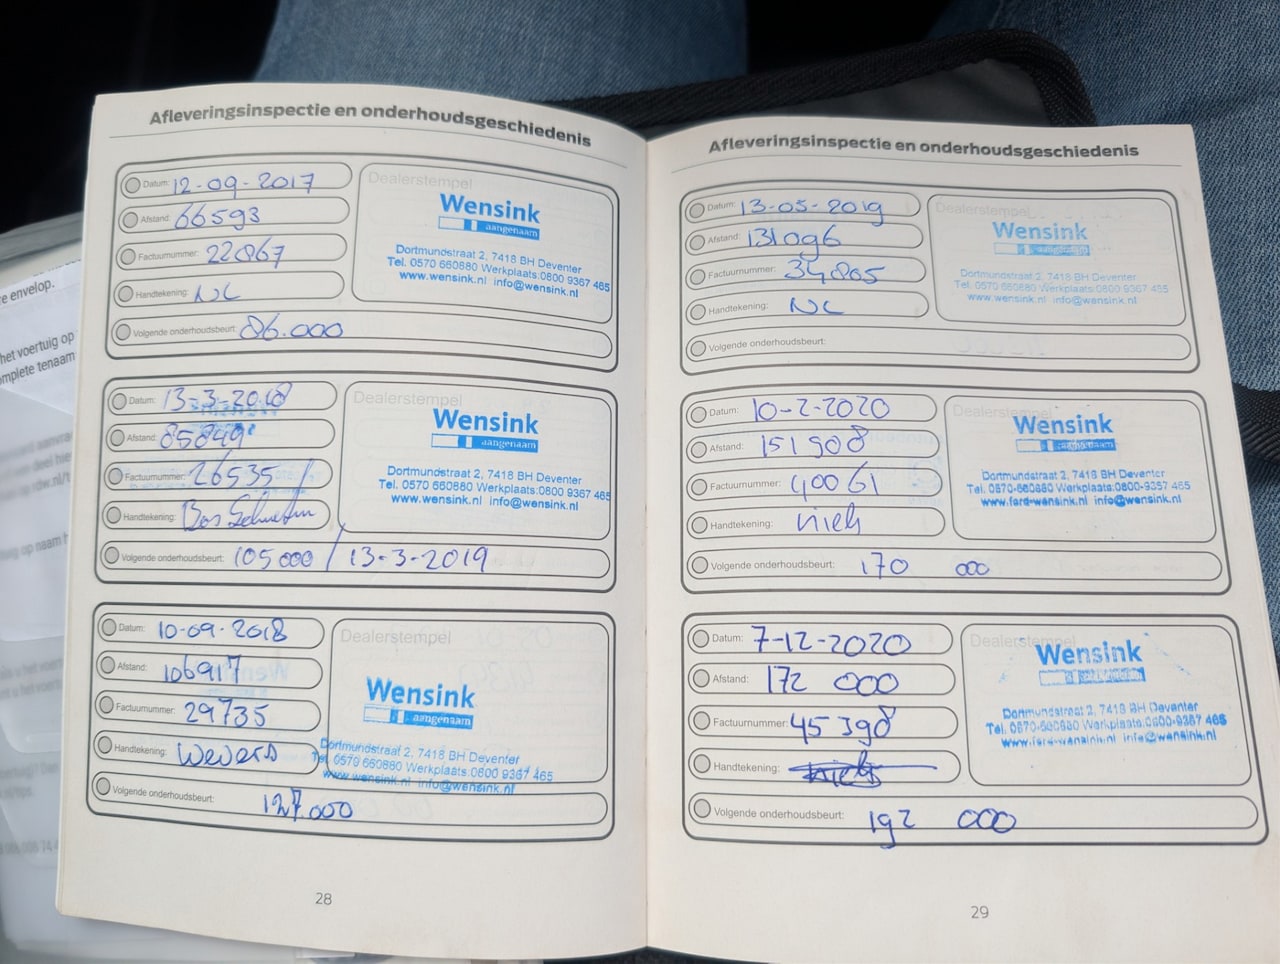 Afleveringsinspectie en onderhoudsgeschiedenis
Datum: 12-09-2017
Afstand: 66593
Factuurnummer: 22867
Handtekening: NC
Volgende onderhoudsbeurt: 86.000
Dealerstempel
Wensink
aangenaam
Dortmundstraat 2, 7418 BH Deventer
Tel. 0570 660880 Werkplaats:0800 9367 465
www.wensink.nl info@wensink.nl
Datum: 13-3-2018
Afstand: 85849
Factuurnummer: 26535 /
Handtekening:
Volgende onderhoudsbeurt: 105000 / 13-3-2019
Dealerstempel
Wensink
aangenaam
Dortmundstraat 2, 7418 BH Deventer
Tel. 0570 660880 Werkplaats:0800 9367 465
www.wensink.nl info@wensink.nl
Datum: 10-09-2018
Afstand: 106917
Factuurnummer: 29735
Handtekening: Wevers
Volgende onderhoudsbeurt: 127.000
Dealerstempel
Wensink
aangenaam
Dortmundstraat 2, 7418 BH Deventer
Tel. 0570 660880 Werkplaats:0800 9367 465
www.wensink.nl info@wensink.nl
28
Afleveringsinspectie en onderhoudsgeschiedenis
Datum: 13-05-2019
Afstand: 131096
Factuurnummer: 34865
Handtekening: NC
Volgende onderhoudsbeurt:
Dealerstempel
Wensink
aangenaam
Dortmundstraat 2, 7418 BH Deventer
Tel. 0570 660880 Werkplaats:0800 9367 465
www.wensink.nl info@wensink.nl
Datum: 10-2-2020
Afstand: 151908
Factuurnummer: 40061
Handtekening: niels
Volgende onderhoudsbeurt: 170 000
Dealerstempel
Wensink
Dortmundstraat 2, 7418 BH Deventer
Tel. 0570-660880 Werkplaats:0800-9367 465
www.ford-wensink.nl info@wensink.nl
Datum: 7-12-2020
Afstand: 172 000
Factuurnummer: 45398
Handtekening:
Volgende onderhoudsbeurt: 192 000
Dealerstempel
Wensink
Dortmundstraat 2, 7418 BH Deventer
Tel. 0570-660880 Werkplaats:0800-9367 465
www.ford-wensink.nl info@wensink.nl
29
e envelop.
het voertuig op
mplete tenaam